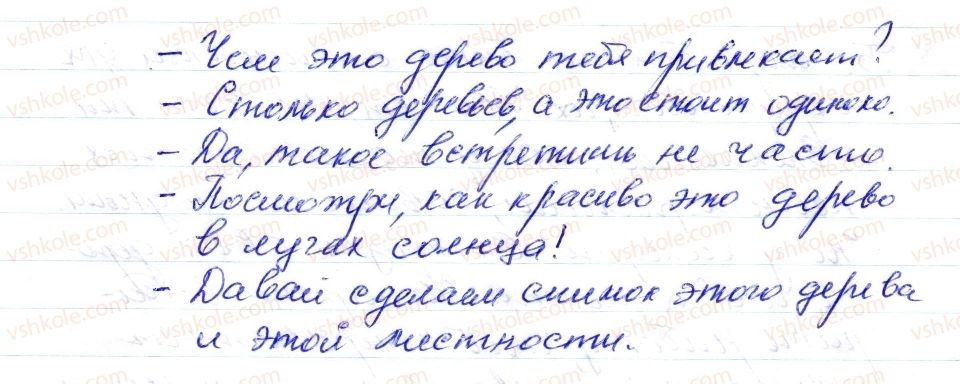 – Чем это дерево тебя привлекает?
– Столько деревьев, а это стоит одиноко.
– Да, такое встретишь не часто.
– Посмотри, как красиво это дерево
в лучах солнца!
– Давай сделаем снимок этого дерева
и этой местности.